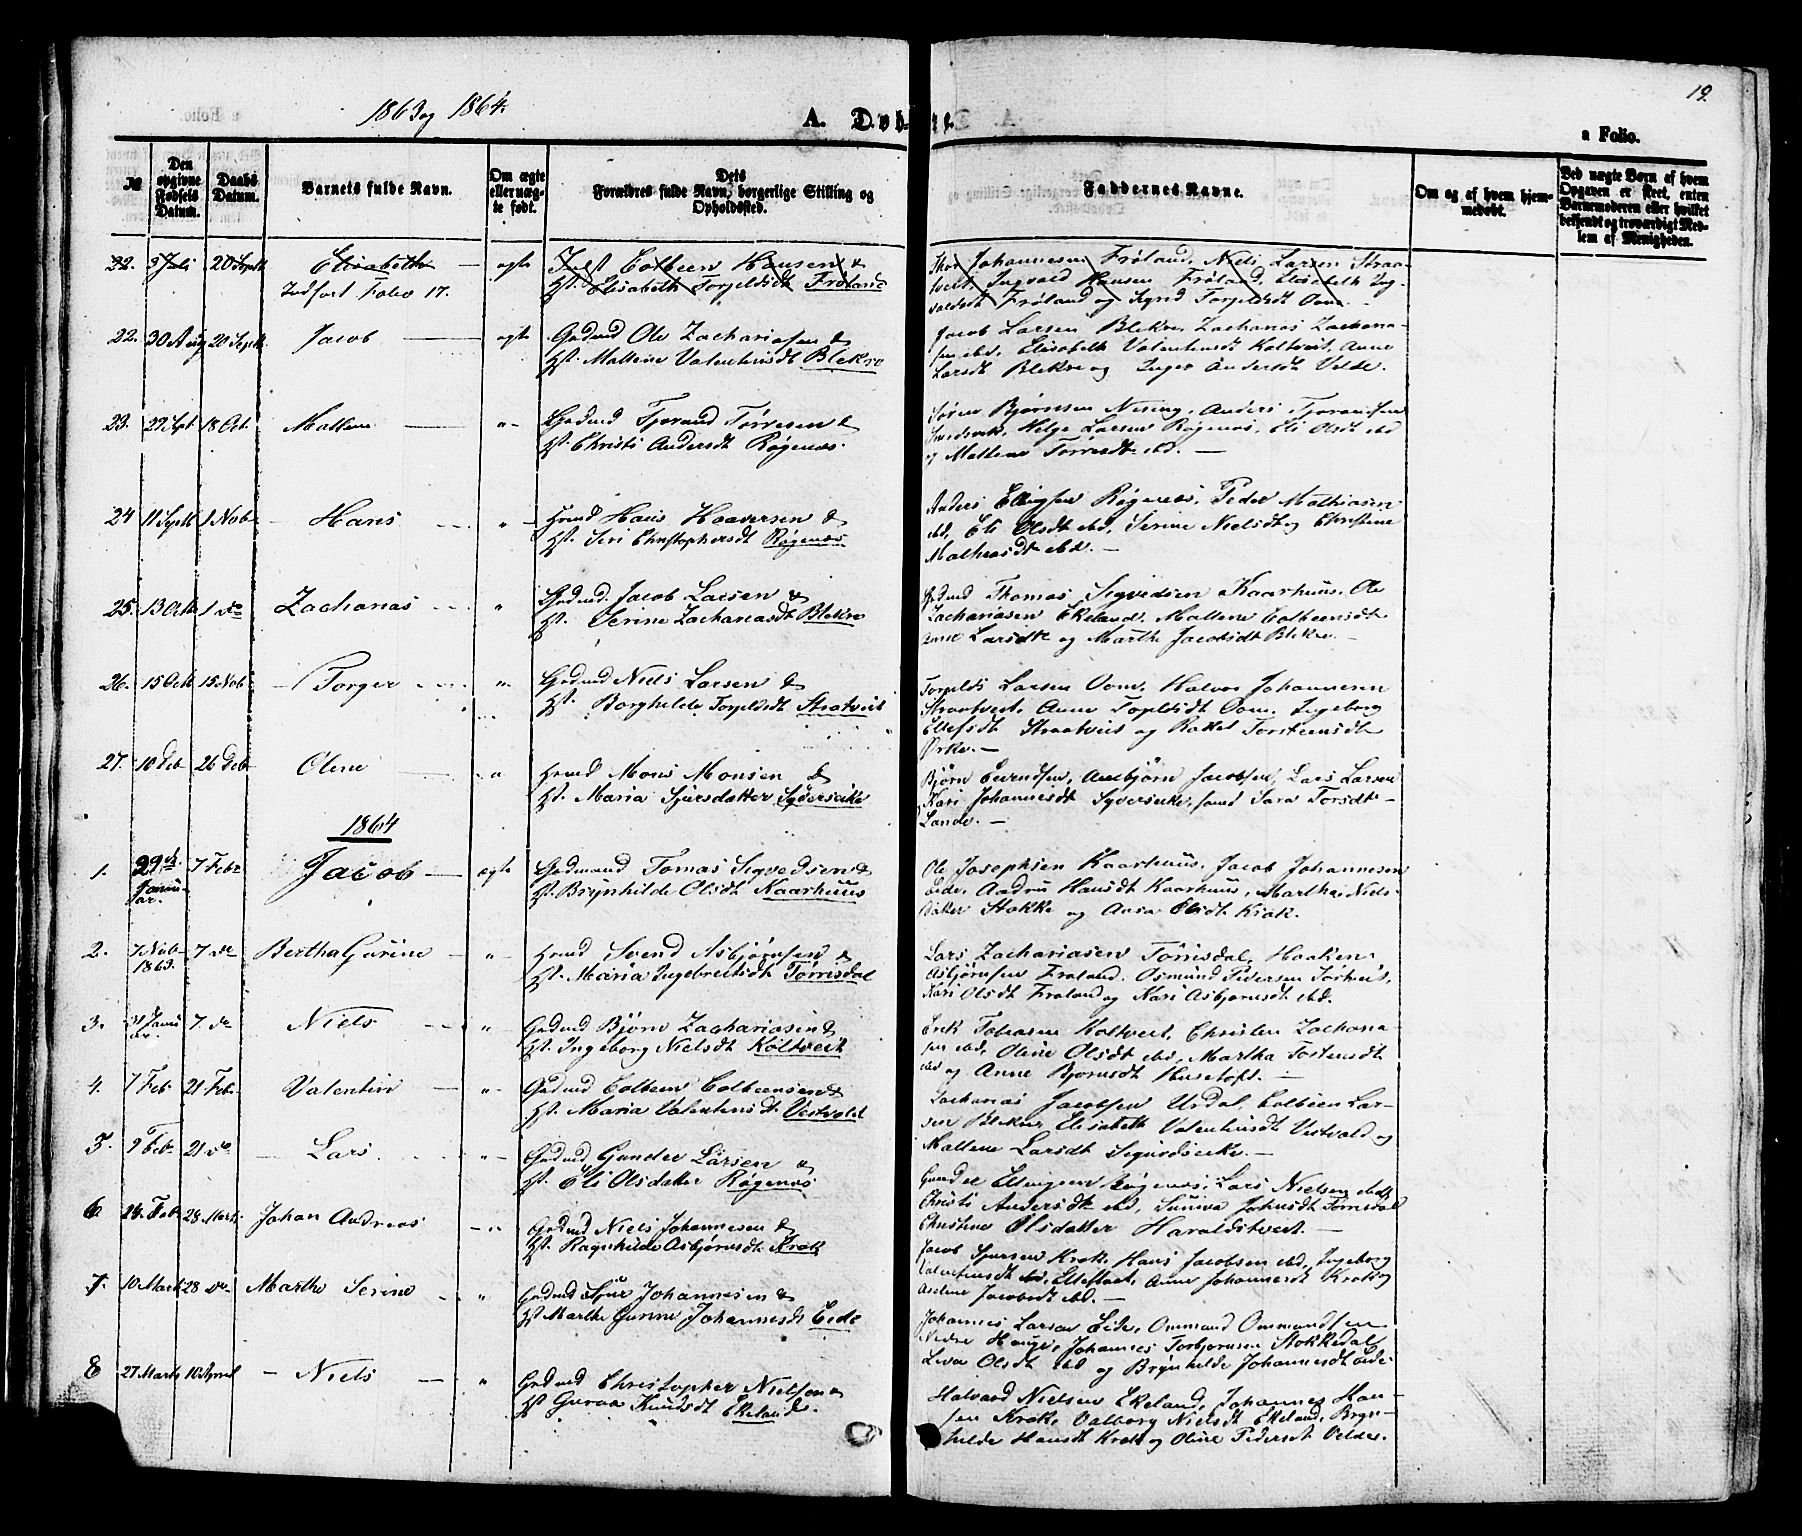 1863 og 1864.
A. Døbte.
19.
a Folio.
№
Den opgivne Fødsels Datum.
Daabs Datum.
Barnets fulde Navn.
Om ægte eller uægte født.
Dets Forældres fulde Navn, borgerlige Stilling og Opholdssted.
Faddernes Navne.
Om og af hvem hjemmedøbt.
Ved uægte Børn af hvem Opgaven er skeet, enten Barnemoderen eller hvilket bekjendt og troværdigt Medlem af Menigheden.
22. 3 Juli 20 Septb Elisabeth ægte
Indfört Folio 17.
Colbeen Hansen &
Hst. Elisabeth Torjeldsdt Frøland
Thor Johannesen Frøland, Niels Larsen Straa-
tveit, Ingvald Hansen Frøland, Elisabeth Ing-
valdsdt Frøland og Sigrid Torjeldsdt Oom.
22. 30 Aug 20 Septb Jacob ægte
Gadmd Ole Zachariasen &
Hst. Maltene Valentinsdt Blekre
Jacob Larsen Blekre, Zacharias Zacharia-
sen ibd, Elisabeth Valentinsdt Koltveit, Anne
Larsdt Blekre og Inger Andersdt Velde.
23. 29 Spt 18 Oct. Maltene "
Gadmd Tjerand Tørresen &
Hst. Christi Andersdt Røgenæs.
Søren Bjørnsen Nising, Anders Tjerandsen
Helge Larsen Røgenæs, Eli Olsdt ibd
og Maltene Tørresdt ibd.
24 11 Septb 1 Novb Hans "
Hmd Hans Haaversen &
Hst. Seri Christophersdt Røgenæs
Anders Ellingsen Røgenæs, Peder Mathiasen
ibd, Eli Olsdt ibd, Serine Nielsdt og Christine
Mathiasdt ibd.
25. 13 Octb 1 do Zacharias "
Gadmd. Jacob Larsen &
Hst. Serine Zachariasdt Blekre
Gadmd Thomas Sigvedsen Kaarhuus, Ole
Zachariasen Ekeland, Maltene Colbeensdt
Anne Larsdt og Marthe Jacobsdt Blekre.
26. 15 Octb 15 Nob Torger "
Gadmd Niels Larsen &
Hst. Borghilde Torjeldsdt Stratveit
Torjelds Larsen Oom, Halvor Johannesen
Straatveit, Anne Topldsdt Oom, Ingeborg
Ellefsdt Straatveit og Rakel Torsteensdt
Ørke.
27. 10 Deb 26 Deb Oline "
Hmd Mons Monsen &
Hst. Maria Sjursdatter Syverseike
Bjørn Eivindsen, Ansbjørn Jacobsen, Lars Larsen
Kari Johannesdt Syverseike, samt Sara Torsdt
Lande.
1864
1. 22de Januar. 7 Febr Jacob ægte
Gadmand Tomas Sigvedsen &
Hst. Brynhilde Olsdt Kaarhuus
Ole Josephsen Kaarhuus, Jacob Johannesen
Eide, Hansdt Kaarhuus, Martha Niels-
datter Stokke og Anna Olsdt Krak.
2. 7 Nob 1863. 7 do Bertha Gurine "
Hmd Svend Asbjørnsen &
Hst. Maria Ingebretsdt Tørrisdal
Lars Zachariasen Tørrisdal, Haaken
Asbjørnsen Frøland. Osmund Pedersen
Kari Olsdt Frøland og Kari Asbjørnsdt ibd.
3. 31 Januar. 7. do Niels "
Gadmd Bjørn Zachariasen &
Hst. Ingeborg Nielsdt Koltveit
Erik Tobiasen Koltveit, Christen Zacharia-
sen ibd, Oline Olsdt ibd, Martha Tostensdt
ibd og Anne Bjørnsdt Husetoft.
4. 7 Feb 21 Feb. Valentin "
Gadmd Colbeen Colbeensen &
Hst. Maria Valentinsdt. Vestvold
Zacharias Jacobsen Urdal, Colbeen Lar-
sen Blekre, Elisabeth Valentinsdt Vestvold og
Maltene Larsdt Sigurdseike.
5. 9 Feb. 21 do Lars. "
Gadmd Gunder Larsen &
Hst. Eli Olsdatter Røgenæs
Gunder Ellingsen Røgenæs, Lars Nielsen ibd
Christi Andersdt ibd, Sunniva Johnsdt Tørrisdal
Christine Olsdatter Haraldstveit.
6. 24. Feb. 28 Mart. Johan Andreas "
Gadmd Niels Johannesen &
Hst. Ragnhilde Asbjørnsdt. Krok
Jacob Sjursen Krok, Hans Jacobsen ibd, Ingeborg
Valentinsdt ibd, Anne Johannesdt Krok og
Jacobsdt ibd.
7. 10 Marts 28 do. Marthe Serine "
Gadmd Sjur Johannesen &
Hst Marthe Gurine Johannesdt Eide
Johannes Larsen Eide, Ommund Ommundsen
Nedre Hauge, Johannes Torbjørnsen Stokkedal,
Liva Olsdt ibd og Brynhilde Johannesdt Eide
8 27 Marts 10 April Niels "
Gadmd Christopher Nielsen &
Hst Guroa Knudsdt Ekeland.
Halvard Nielsen Ekeland, Johannes Han-
sen Krok, Valborg Nielsdt Ekeland, Bryn-
hilde Hansdt Krok og Oline Pedersdt Velde.